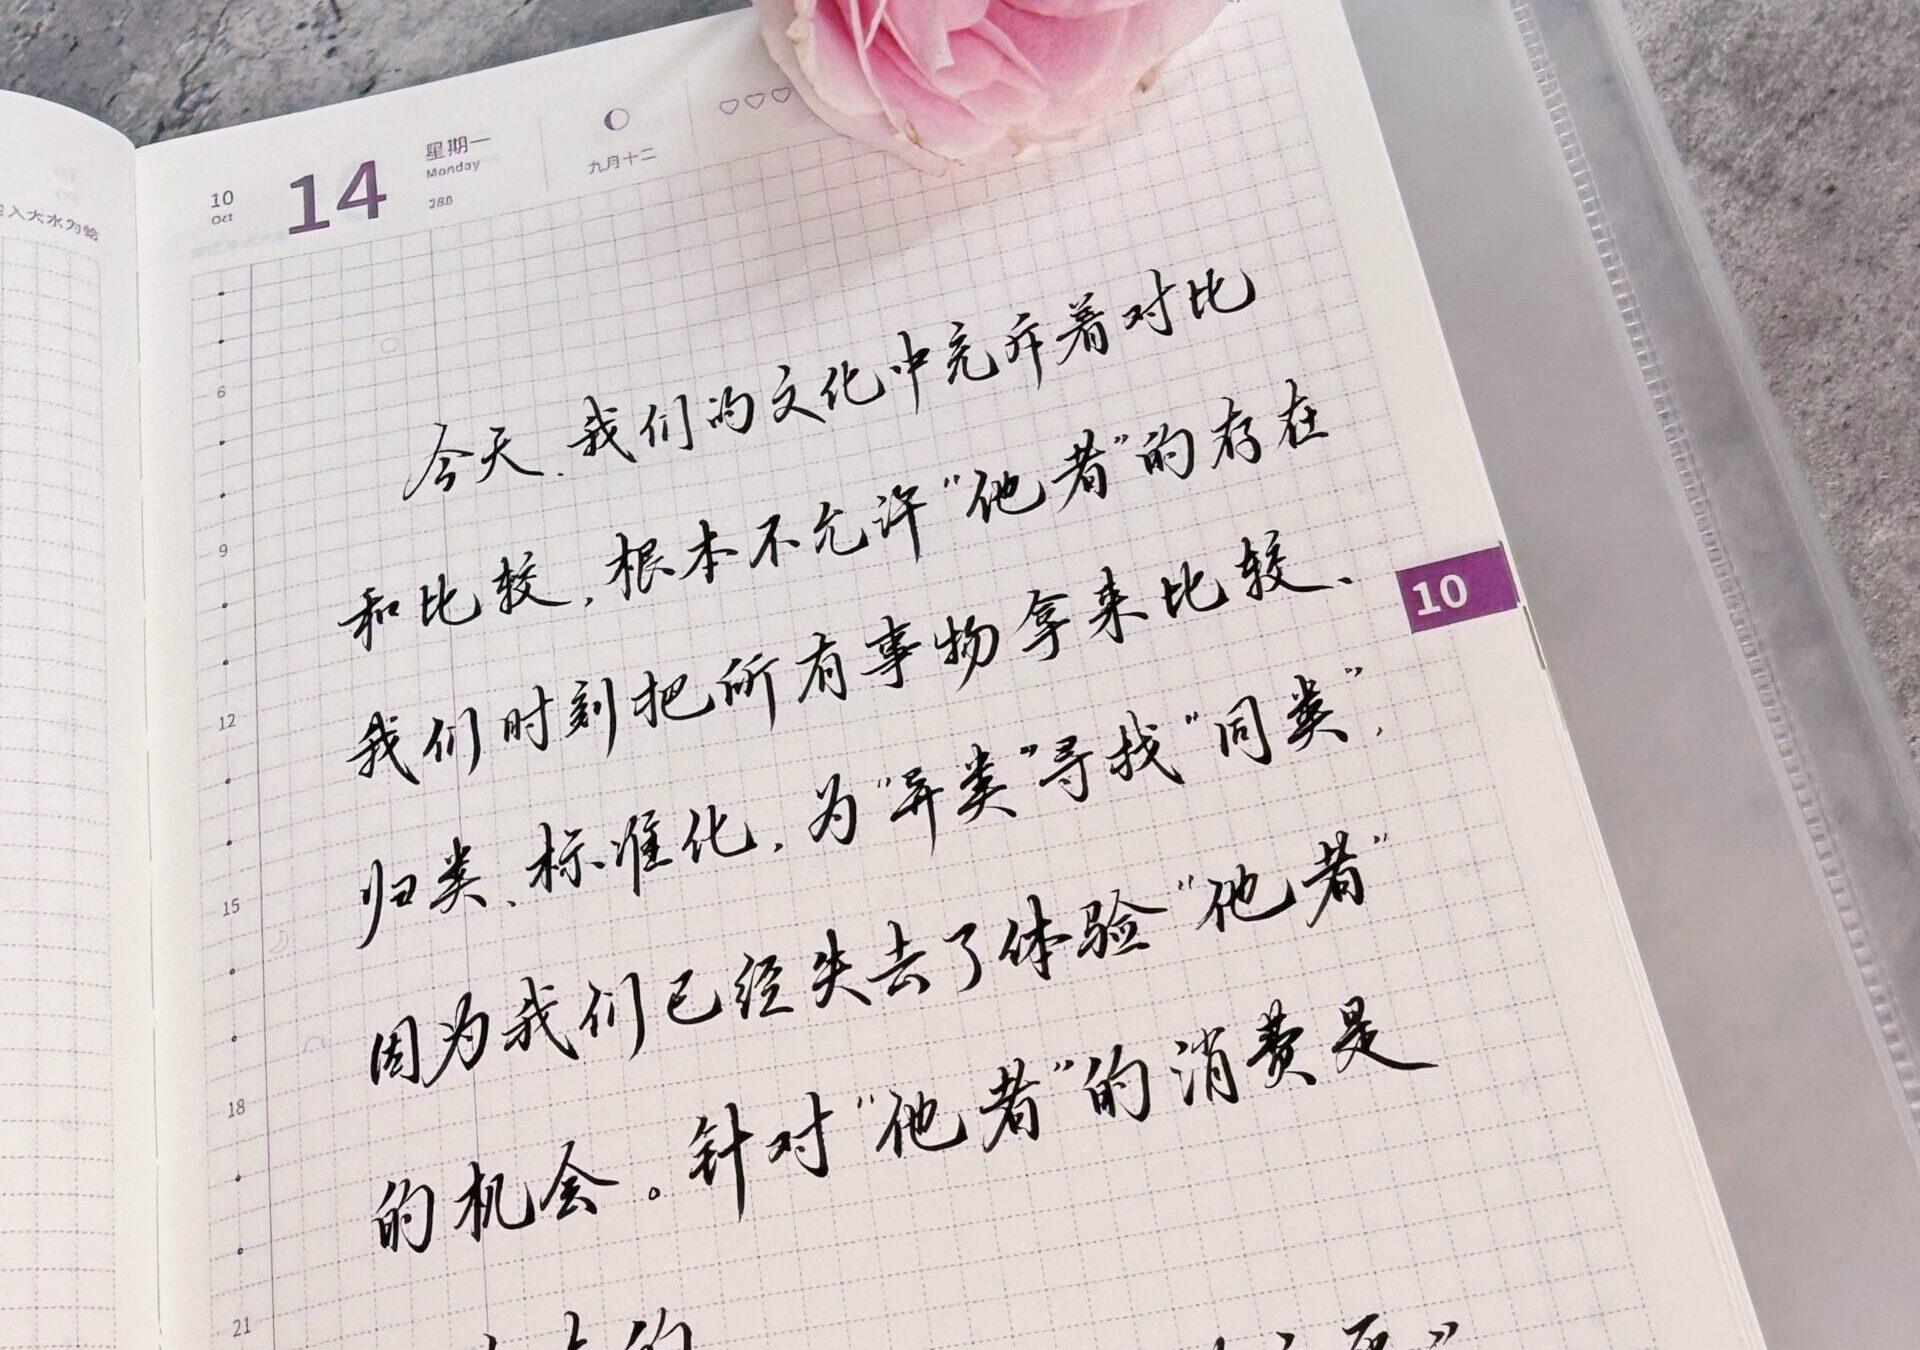 10
Oct
14
星期一
Monday
288
九月十二
入大水为蛤
今天、我们的文化中充斥着对比
和比较，根本不允许“他者”的存在
我们时刻把所有事物拿来比较、
归类、标准化，为“异类”寻找“同类”，
因为我们已经失去了体验“他者”
的机会。针对“他者”的消费是
6
9
12
15
18
21
10